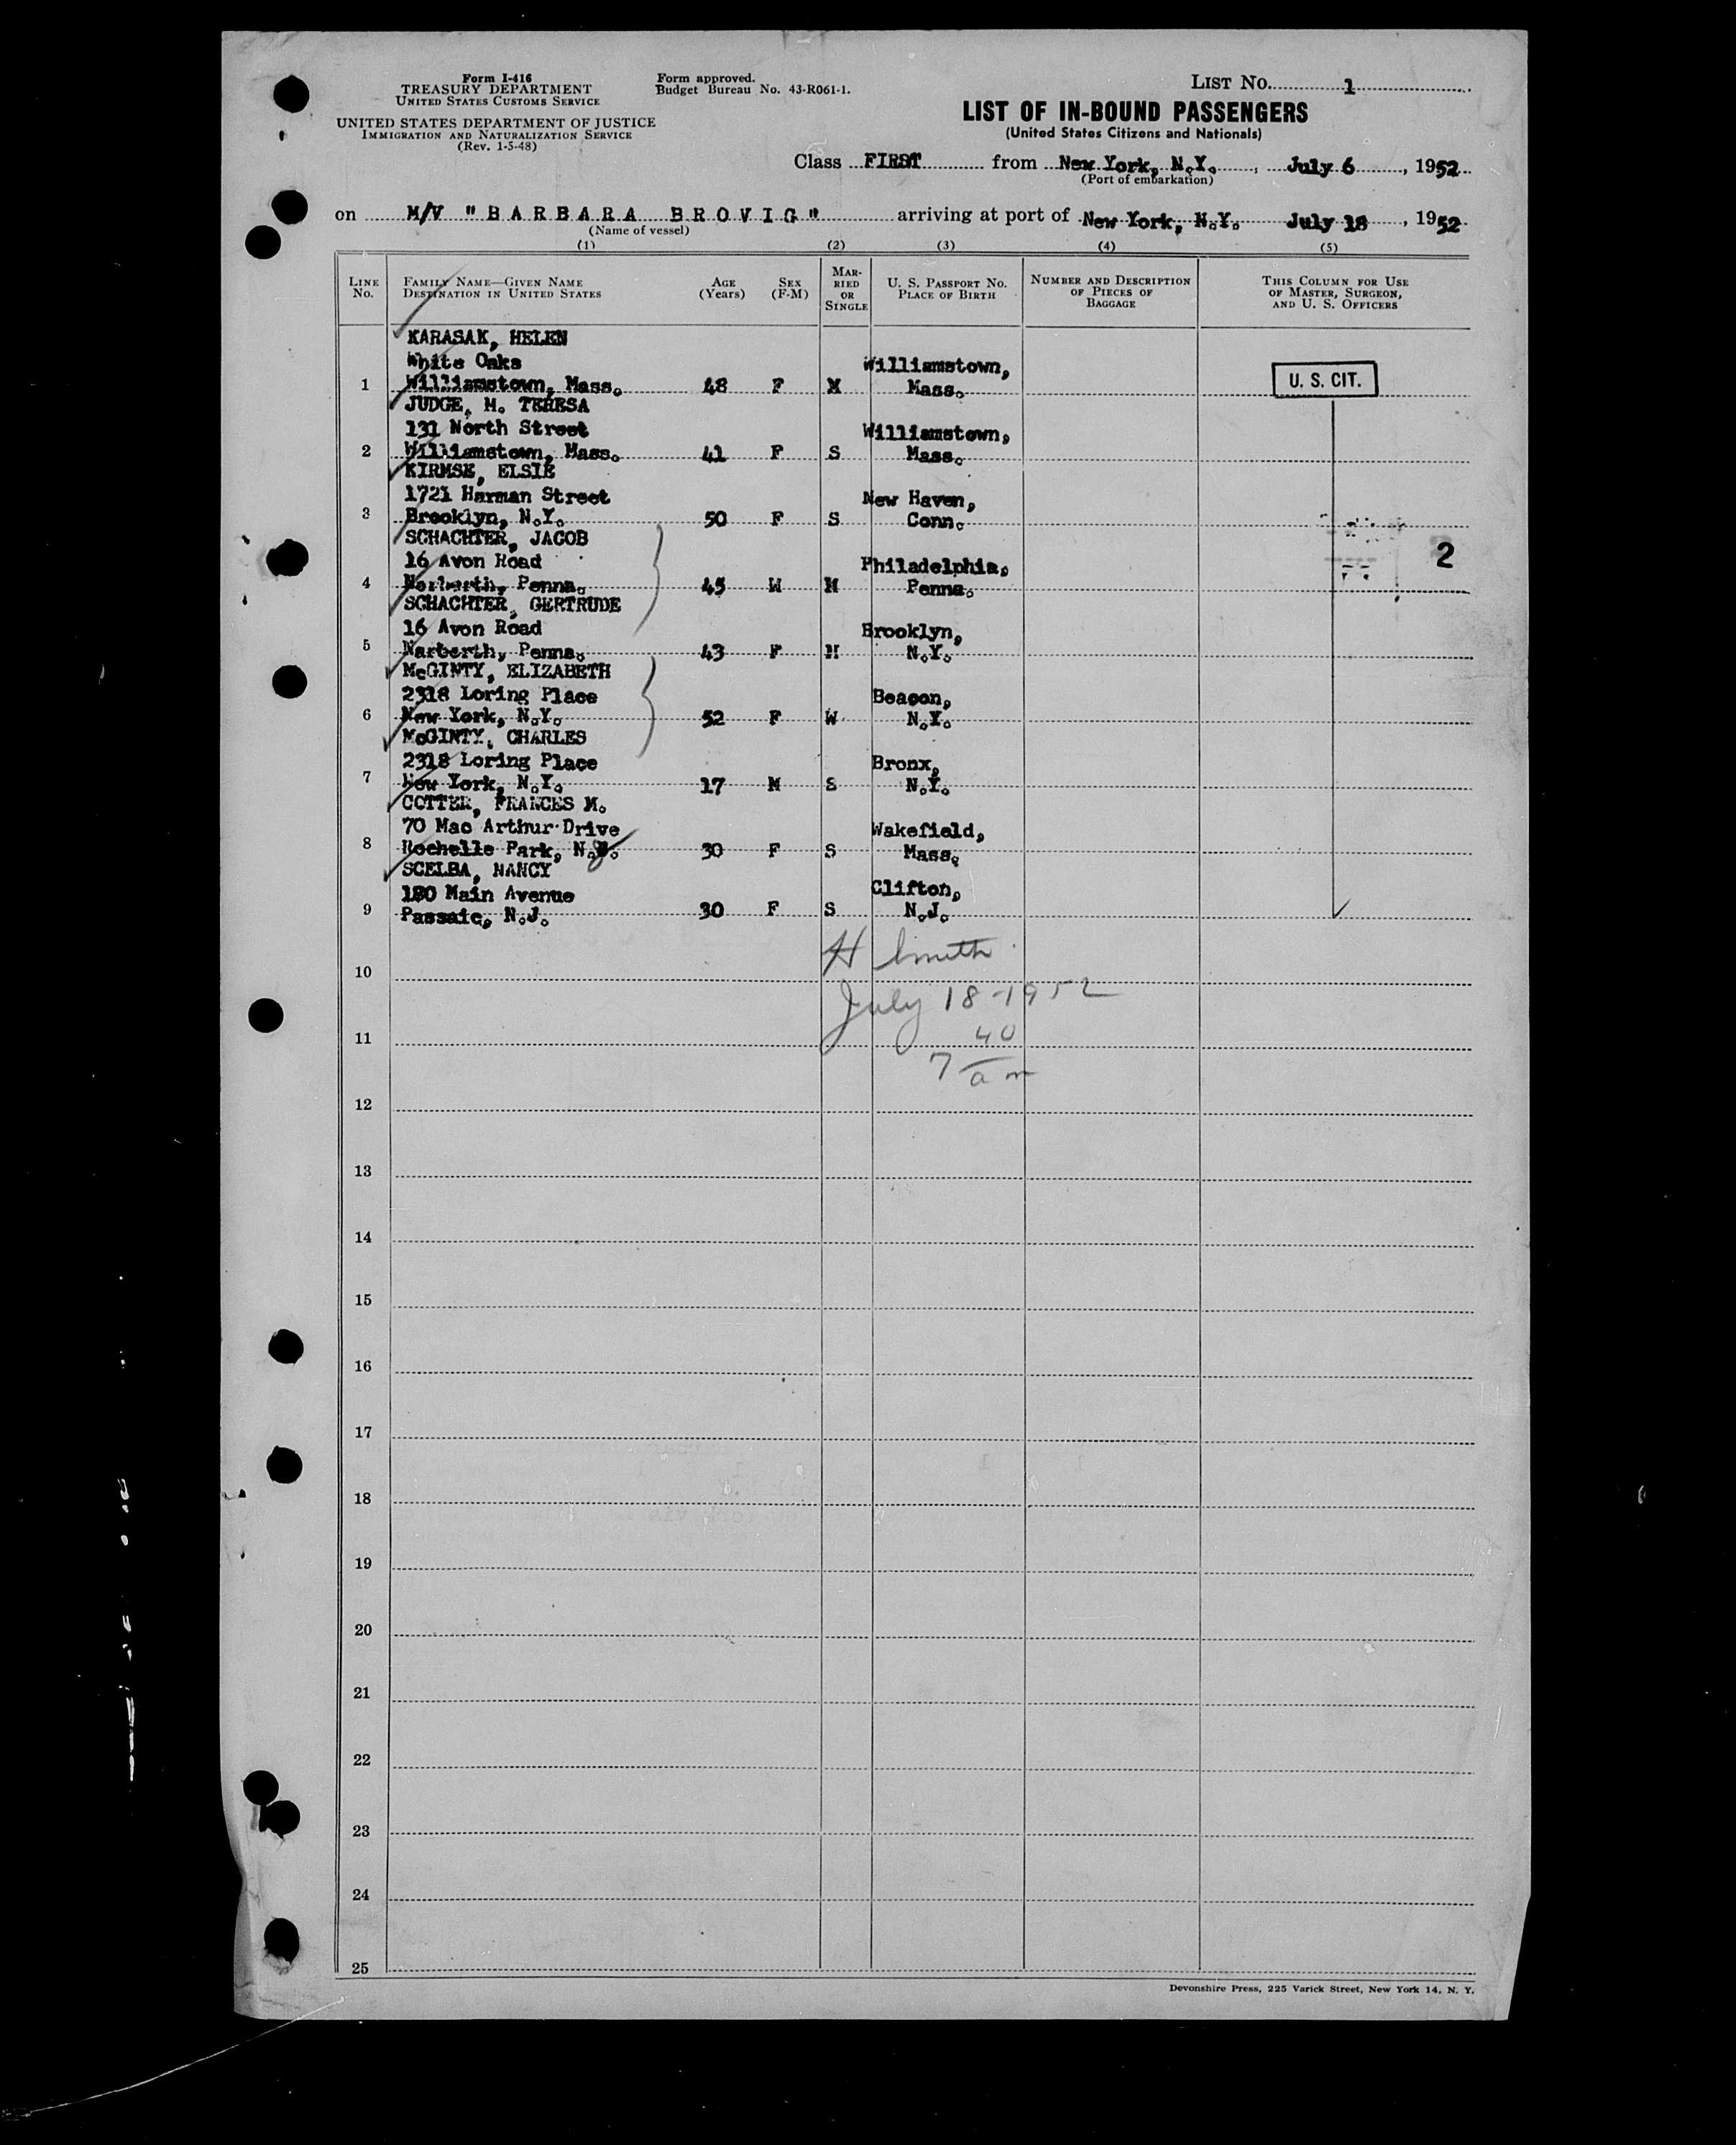 Form I-416
TREASURY DEPARTMENT
UNITED STATES CUSTOMS SERVICE
UNITED STATES DEPARTMENT OF JUSTICE
IMMIGRATION AND NATURALIZATION SERVICE
(Rev. 1-5-48)
Form approved.
Budget Bureau No. 43-R061-1.
LIST No. 1
LIST OF IN-BOUND PASSENGERS
(United States Citizens and Nationals)
Class FIRST from New York, N.Y., July 6, 1952
(Port of embarkation)
on M/V "BARBARA BROVIG" arriving at port of New York, N.Y. July 18, 1952
(Name of vessel)
(1) (2) (3) (4) (5)
LINE No. FAMILY NAME—GIVEN NAME DESTINATION IN UNITED STATES AGE (Years) SEX (F-M) MARRIED OR SINGLE U. S. PASSPORT No. PLACE OF BIRTH NUMBER AND DESCRIPTION OF PIECES OF BAGGAGE THIS COLUMN FOR USE OF MASTER, SURGEON, AND U. S. OFFICERS
KARASAK, HELEN
White Oaks Williamstown,
1 Williamstown, Mass. 48 F M Mass. U. S. CIT.
JUDGE, M. TERESA
131 North Street Williamstown,
2 Williamstown, Mass. 41 F S Mass.
KIRMSE, ELSIE
1721 Harman Street New Haven,
3 Brooklyn, N.Y. 50 F S Conn.
SCHACHTER, JACOB
16 Avon Road Philadelphia, 2
4 Narberth, Penna. 45 W M Penna.
SCHACHTER, GERTRUDE
16 Avon Road Brooklyn,
5 Narberth, Penna. 43 F M N.Y.
McGINTY, ELIZABETH
2318 Loring Place Beacon,
6 New York, N.Y. 52 F W N.Y.
McGINTY, CHARLES
2318 Loring Place Bronx,
7 New York, N.Y. 17 M S N.Y.
COTTER, FRANCES M.
70 Mac Arthur Drive Wakefield,
8 Rochelle Park, N.J. 30 F S Mass.
SCELBA, NANCY
180 Main Avenue Clifton,
9 Passaic, N.J. 30 F S N.J.
H Smith
10
July 18-1952
11
7 40 am
12
13
14
15
16
17
18
19
20
21
22
23
24
25
Devonshire Press, 225 Varick Street, New York 14, N. Y.